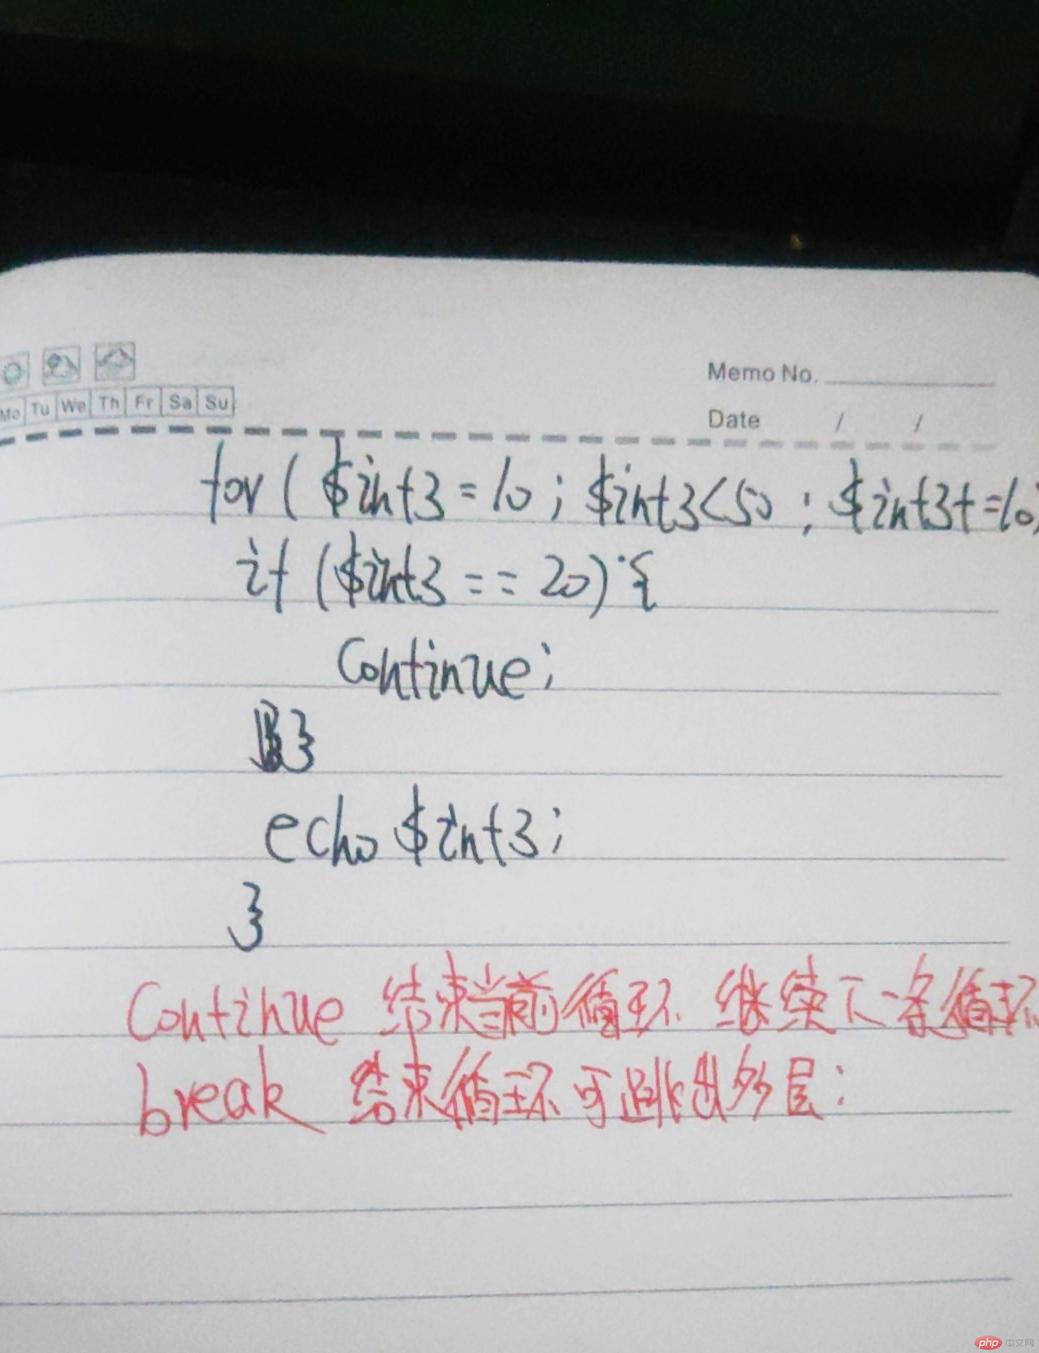 Memo No.
Mo Tu We Th Fr Sa Su
Date / /
for ( $int3 = 10 ; $int3<50 ; $int3+=10)
if ($int3 == 20) {
Continue;
}
echo $int3;
}
Continue 结束当前循环 继续下一条循环
break 结束循环可跳出多层;
php 中文网